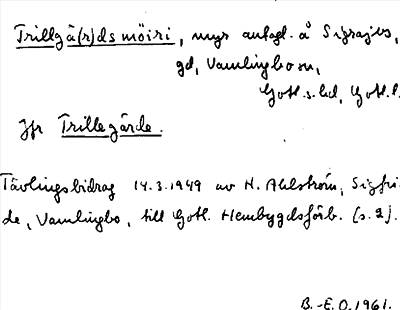 Trillgå(r)ds möiri, myr anlagd. å Sigrajvs,
gd, Vamlingbo sn,
Gotl. s. hd, Gotl. l.
Jfr Trillegårde.
Tävlingsbidrag 14.3.1949 av N. Ahlström, Sigfri-
de, Vamlingbo, till Gotl. Hembygdsförb. (s. 2).
B.-E.O. 1961.